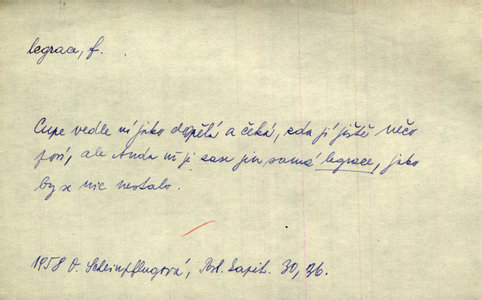 legrace, f.
Cupe vedle ní jako dospělá a čeká, zda jí ještě něco
poví, ale Anda už je zase jen samá legrace, jako
by se nic nestalo.
1958 O. Scheinpflugová, Posl. kapit. 30, 26.